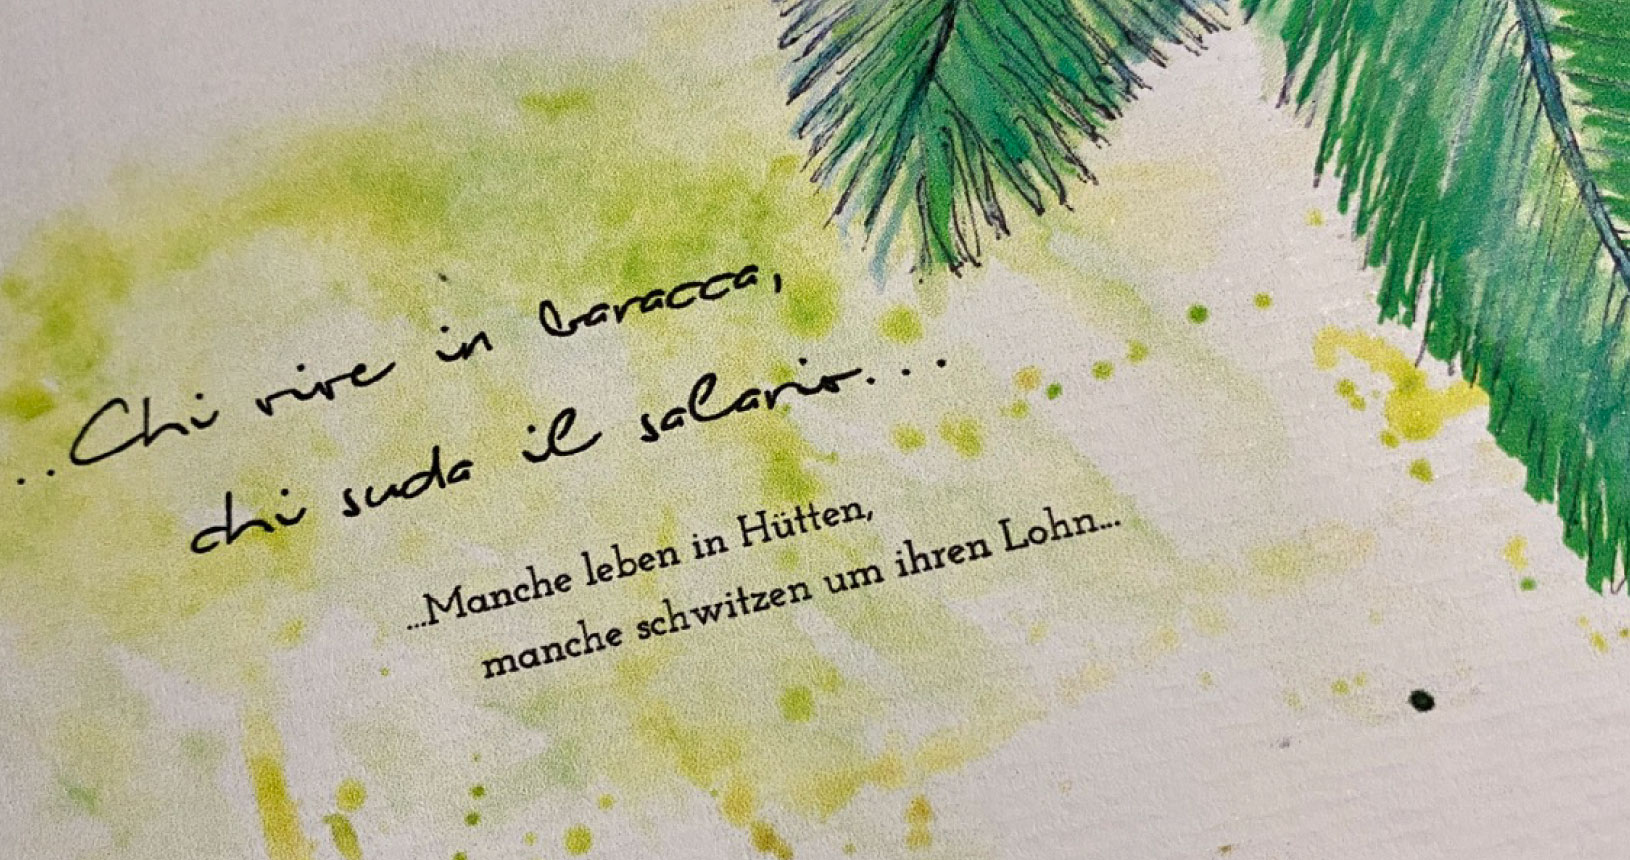 ..Chi vive in baracca,
chi suda il salario...
...Manche leben in Hütten,
manche schwitzen um ihren Lohn...